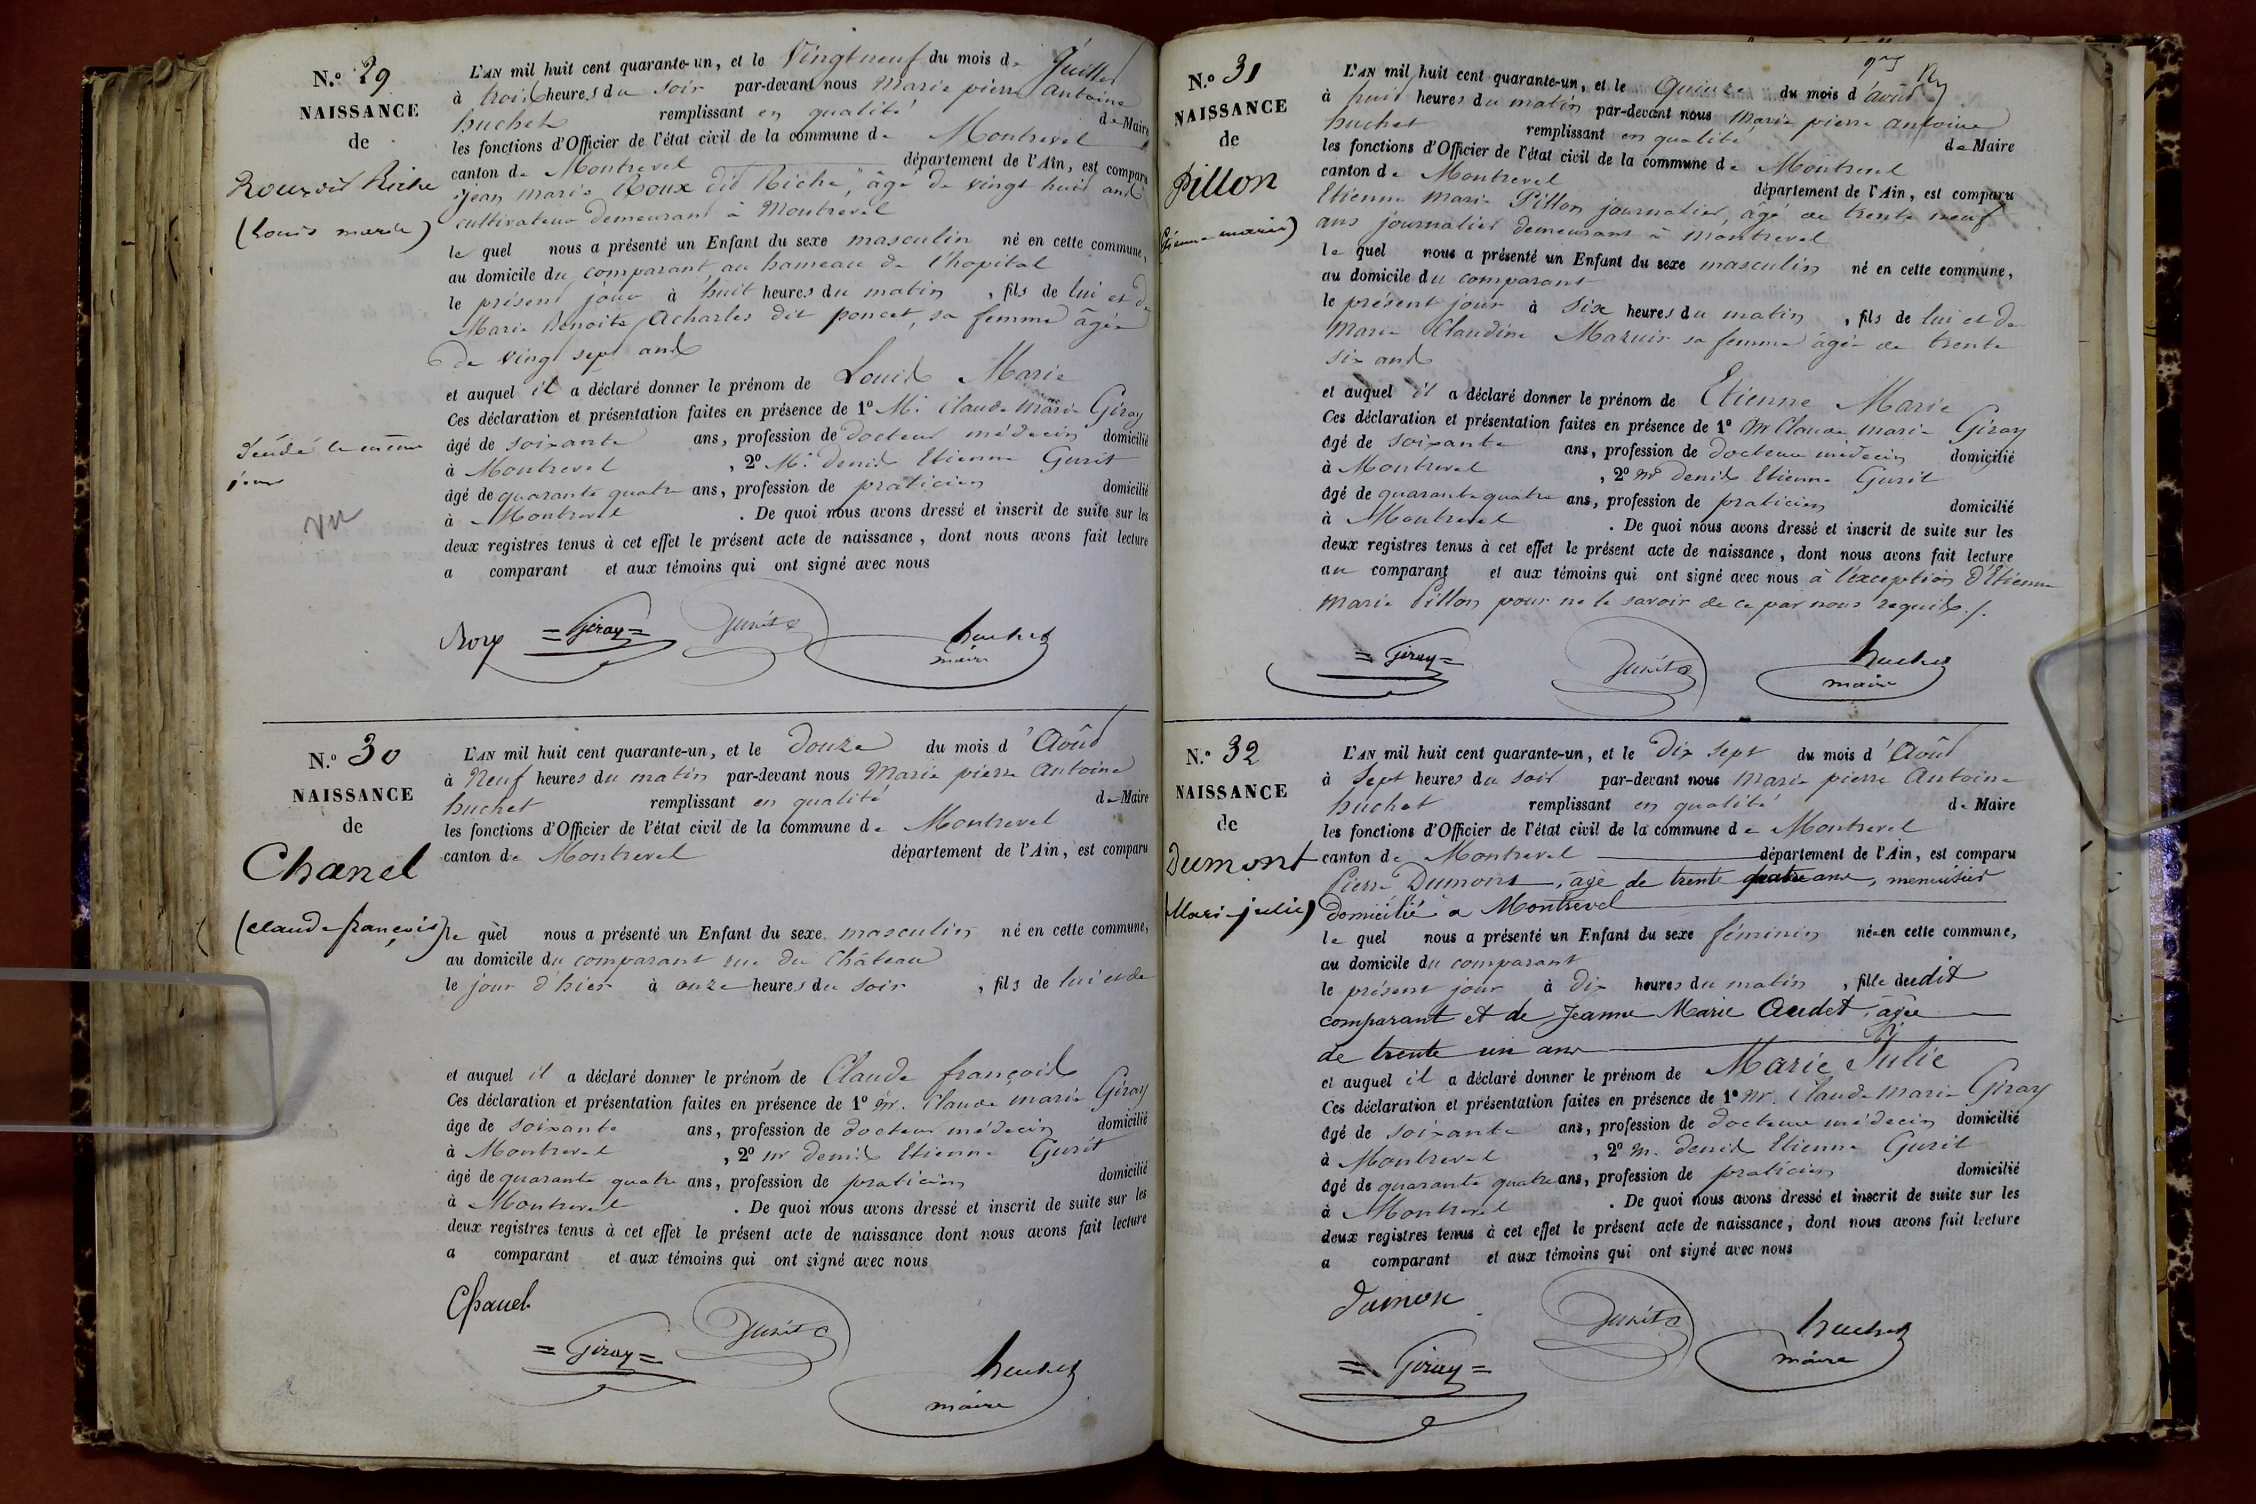 N.o 29
NAISSANCE
de
Roux dit Riche
(Louis marie)
décédé le même
jour
vu
L'AN mil huit cent quarante-un, et le Vingt neuf du mois de Juillet
à trois heures du soir par-devant nous Marie pierre antoine
huchet remplissant en qualité de Maire
les fonctions d'Officier de l'état civil de la commune de Montrevel
canton de Montrevel département de l'Ain, est comparu
jean marie Roux dit Riche, âgé de vingt huit ans
cultivateur demeurant à Montrevel
le quel nous a présenté un Enfant du sexe masculin né en cette commune,
au domicile du comparant au hameau de l'hopital
le présent jour à huit heures du matin, fils de lui et de
Marie Benoite Acharles dit poncet, sa femme âgée
de vingt sept ans
et auquel il a déclaré donner le prénom de Louis Marie
Ces déclaration et présentation faites en présence de 1o M. Claude Marie Giray
âgé de soixante ans, profession de docteur médecin domicilié
à Montrevel, 2o M. denis Etienne Gurit
âgé de quarante quatre ans, profession de praticien domicilié
à Montrevel. De quoi nous avons dressé et inscrit de suite sur les
deux registres tenus à cet effet le présent acte de naissance, dont nous avons fait lecture
a comparant et aux témoins qui ont signé avec nous
= Giray = Gurit huchet
maire
N.o 30
NAISSANCE
de
Chanel
(claude françois)
L'AN mil huit cent quarante-un, et le douze du mois d'Août
à Neuf heures du matin par-devant nous Marie pierre Antoine
huchet remplissant en qualité de Maire
les fonctions d'Officier de l'état civil de la commune de Montrevel
canton de Montrevel département de l'Ain, est comparu
le quel nous a présenté un Enfant du sexe masculin né en cette commune,
au domicile du comparant rue du Château
le jour d'hier à onze heures du soir, fils de lui et de
et auquel il a déclaré donner le prénom de Claude françois
Ces déclaration et présentation faites en présence de 1o Mr. Claude marie Giray
âge de soixante ans, profession de docteur médecin domicilié
à Montrevel, 2o mr denis Etienne Gurit
âgé de quarante quatre ans, profession de praticien domicilié
à Montrevel. De quoi nous avons dressé et inscrit de suite sur les
deux registres tenus à cet effet le présent acte de naissance dont nous avons fait lecture
a comparant et aux témoins qui ont signé avec nous
Chanel
= Giray = Gurit huchet
maire
N.o 31
NAISSANCE
de
Pillon
(Etienne marie)
L'AN mil huit cent quarante-un, et le Quinze du mois d'août
à huit heures du matin par-devant nous Marie pierre antoine
huchet remplissant en qualité de Maire
les fonctions d'Officier de l'état civil de la commune de Montrevel
canton de Montrevel département de l'Ain, est comparu
Etienne Marie Pillon journalier, âgé de trente neuf
ans journalier demeurant à Montrevel
le quel nous a présenté un Enfant du sexe masculin né en cette commune,
au domicile du comparant
le présent jour à six heures du matin, fils de lui et de
Marie Claudine Mazuir sa femme âgée de trente
six ans
et auquel il a déclaré donner le prénom de Etienne Marie
Ces déclaration et présentation faites en présence de 1o Mr Claude Marie Giray
âgé de soixante ans, profession de docteur médecin domicilié
à Montrevel, 2o mr denis Etienne Gurit
âgé de quarante quatre ans, profession de praticien domicilié
à Montrevel. De quoi nous avons dressé et inscrit de suite sur les
deux registres tenus à cet effet le présent acte de naissance, dont nous avons fait lecture
au comparant et aux témoins qui ont signé avec nous à l'exception d'Etienne
Marie Pillon pour ne le savoir de ce par nous requis./.
= Giray = Gurit huchet
maire
N.o 32
NAISSANCE
de
Dumont
(Marie julie)
L'AN mil huit cent quarante-un, et le dix sept du mois d'Août
à Sept heures du soir par-devant nous Marie pierre Antoine
huchet remplissant en qualité de Maire
les fonctions d'Officier de l'état civil de la commune de Montrevel
canton de Montrevel département de l'Ain, est comparu
Pierre Dumont, âgé de trente quatre ans, menuisier
domicilié a Montrevel
le quel nous a présenté un Enfant du sexe féminin née en cette commune,
au domicile du comparant
le présent jour à dix heures du matin, fille dudit
comparant et de Jeanne Marie Audet, âgée
de trente un ans
et auquel il a déclaré donner le prénom de Marie Julie
Ces déclaration et présentation faites en présence de 1o Mr. Claude Marie Giray
âgé de soixante ans, profession de docteur médecin domicilié
à Montrevel, 2o m. denis Etienne Gurit
âgé de quarante quatre ans, profession de praticien domicilié
à Montrevel. De quoi nous avons dressé et inscrit de suite sur les
deux registres tenus à cet effet le présent acte de naissance, dont nous avons fait lecture
a comparant et aux témoins qui ont signé avec nous
dumon
= Giray = Gurit huchet
maire